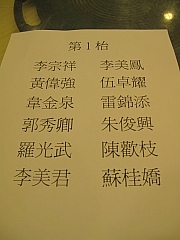 第1枱
李宗祥 李美鳳
黃偉強 伍卓耀
韋金泉 雷錦添
郭秀卿 朱俊興
羅光武 陳歡枝
李美君 蘇桂嬌